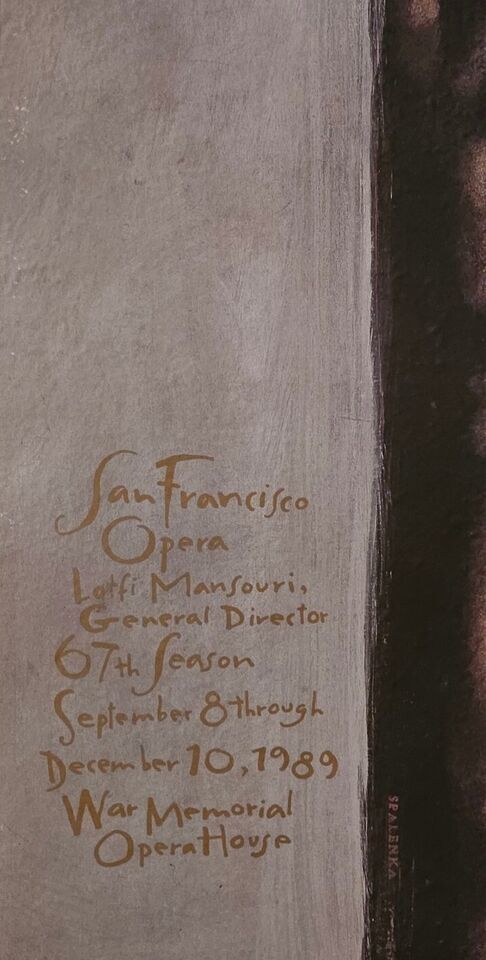 San Francisco
Opera
Lotfi Mansouri,
General Director
67th Season
September 8 through
December 10, 1989
War Memorial
Opera House
SPALENKA